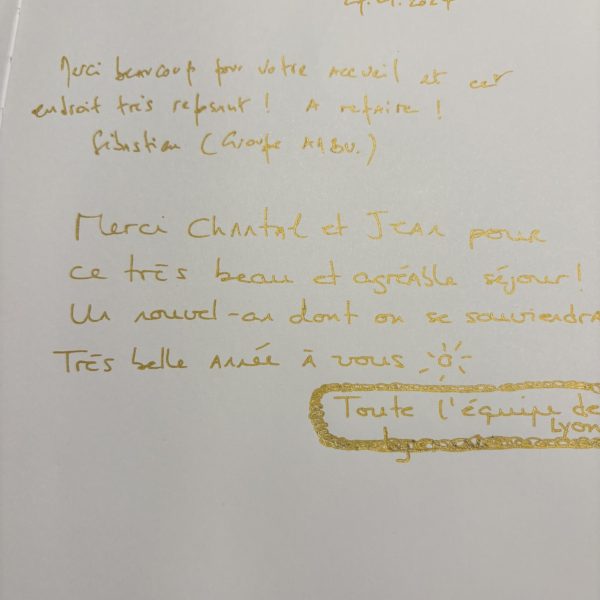 Merci beaucoup pour votre accueil et cet
endroit très reposant ! A refaire !
Sébastien (Groupe
Merci Chantal et Jean pour
ce très beau et agréable séjour !
Un nouvel-an dont on se souviendra
Très belle année à vous
Toute l'équipe de
Lyon